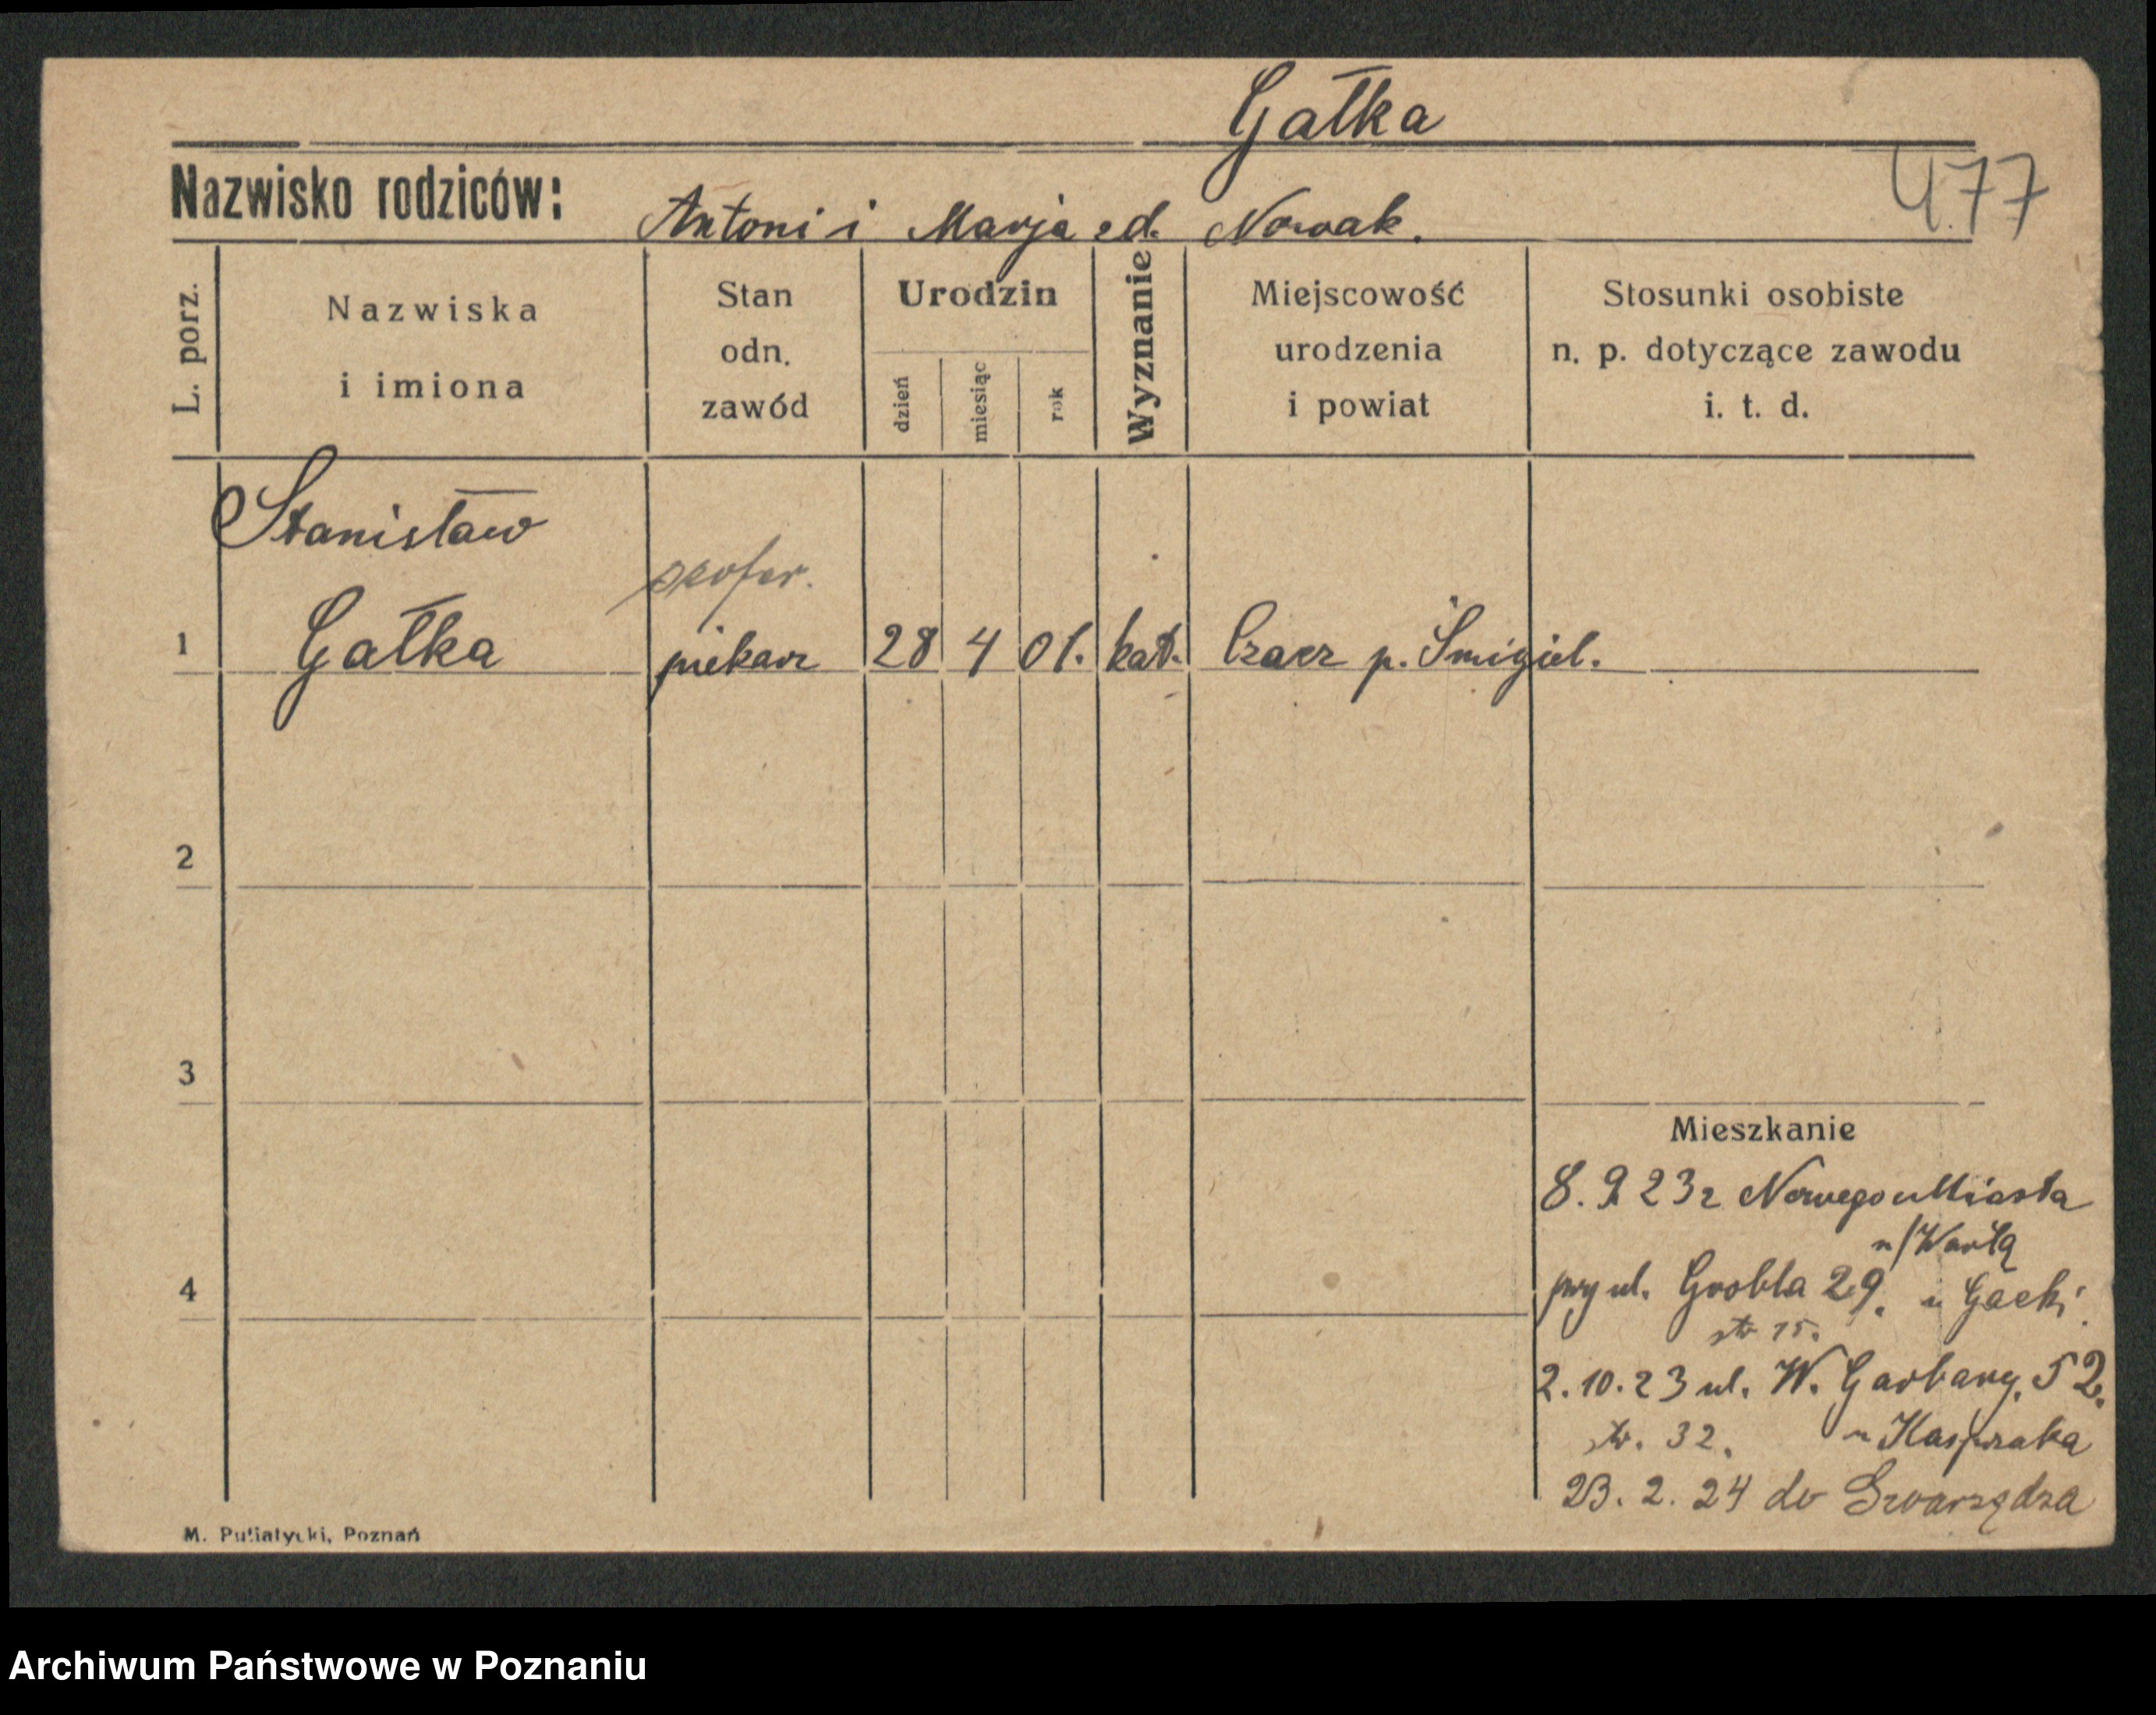 Gałka
Nazwisko rodziców: Antoni i Marja zd. Nowak.
477
L. porz.
Nazwiska
i imiona
Stan
odn.
zawód
Urodzin
dzień
miesiąc
rok
Wyznanie
Miejscowość
urodzenia
i powiat
Stosunki osobiste
n. p. dotyczące zawodu
i. t. d.
Stanisław
szofer.
1 Gałka piekarz 28 4 01. kat. Czacz p. Śmigiel.
2
3
Mieszkanie
8. 9 23 z Nowego Miasta
n/Wartą
4
przy ul. Grobla 29. u Gacki
str 15.
2. 10. 23 ul. W. Garbary. 52.
str. 32. u Kasprzaka
23. 2. 24 do Swarzędza
M. Putiatycki, Poznań
Archiwum Państwowe w Poznaniu